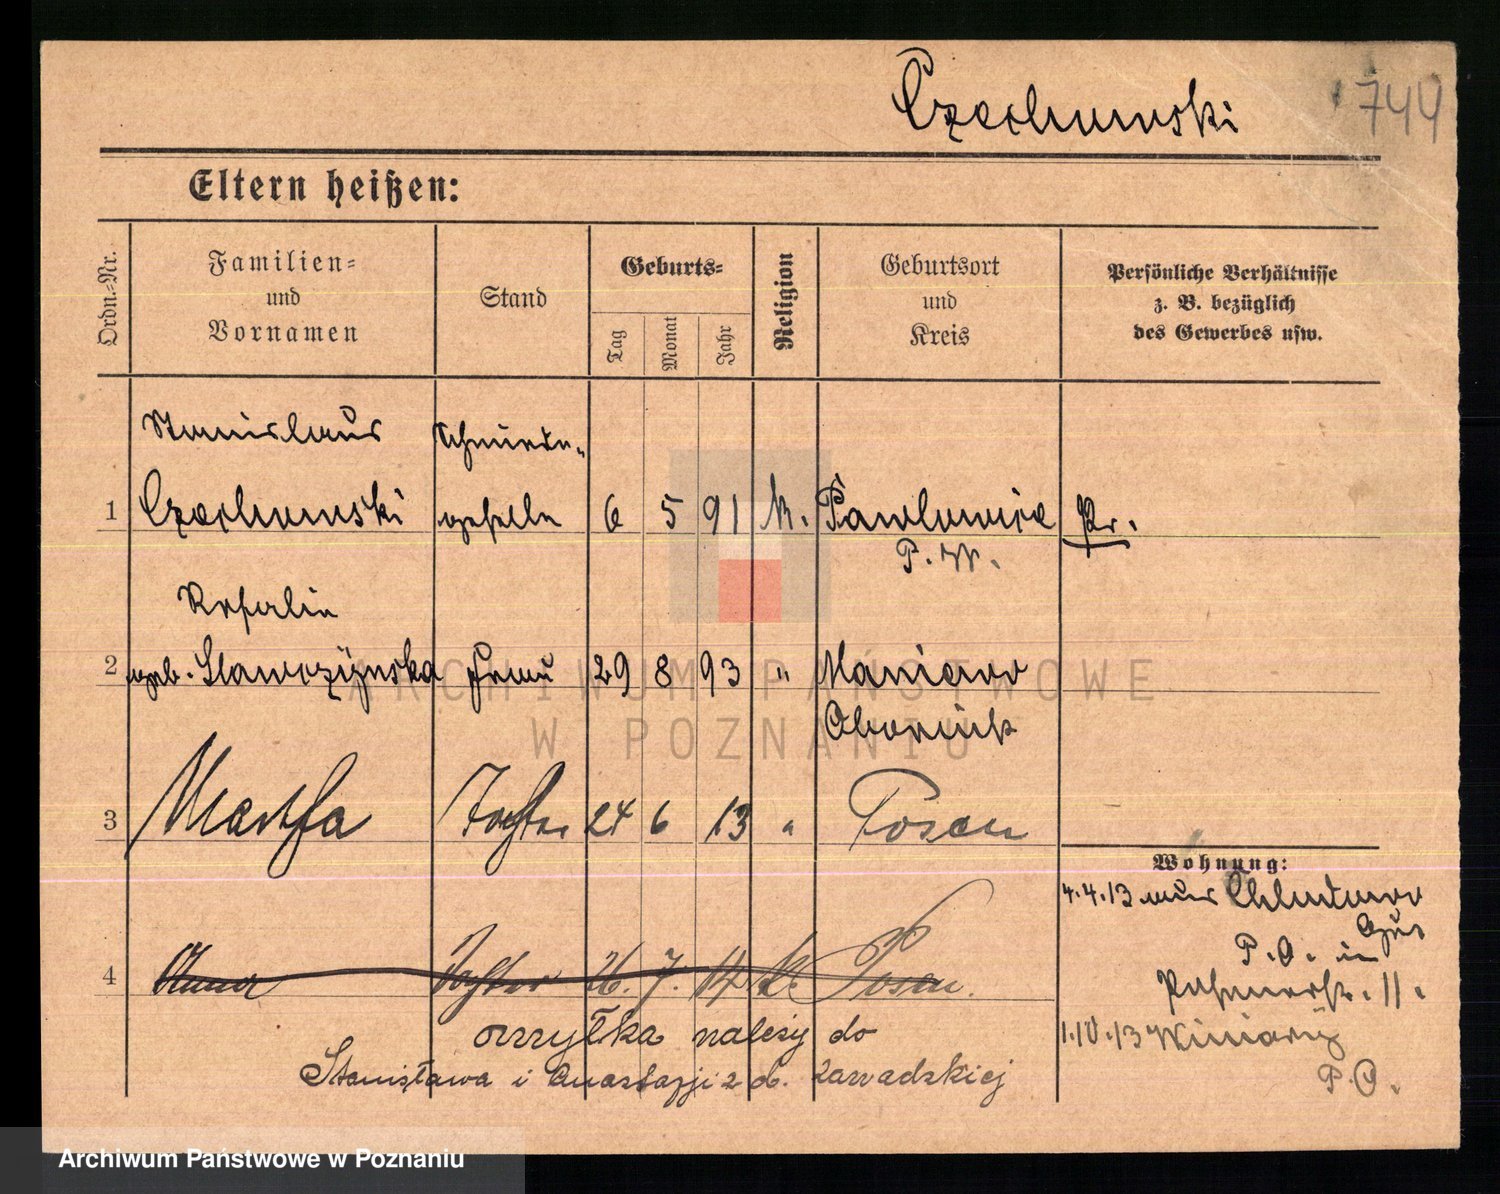 Czechowski
744
Eltern heißen:
Ordn.-Nr.
Familien-
und
Vornamen
Stand
Geburts-
Tag
Monat
Jahr
Religion
Geburtsort
und
Kreis
Persönliche Verhältnisse
z. B. bezüglich
des Gewerbes usw.
Stanislaus Schmiede-
1 Czechowski geselle 6 5 91 k. Pawlowice Pr.
P. W.
Rosalie
2 geb. Slawczynska Frau 29 8 93 " Maniewo
Obornick
3 Martha Tochter 24 6 13 " Posen
Wohnung:
4.4.13 aus Chludowo
Gut
P.O. in
11.
4 Tochter 26. 7. 14 k. Posen.
omyłka należy do
1.10.13 Winiary
Stanisława i Anastazji z d. Zawadzkiej
P.O.
ARCHIWUM PAŃSTWOWE
W POZNANIU
Archiwum Państwowe w Poznaniu